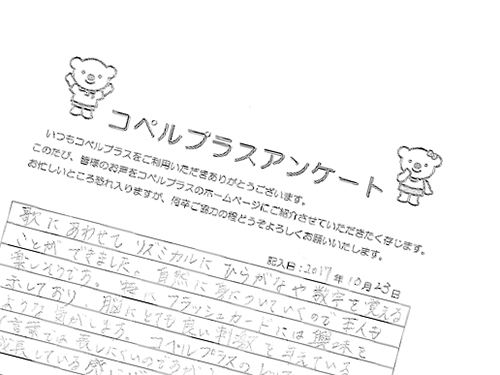 コペルプラスアンケート
いつもコペルプラスをご利用いただきありがとうございます。
このたび、皆様のお声をコペルプラスのホームページにご紹介させていただきたく存じます。
お忙しいところ恐れ入りますが、何卒ご協力の程どうぞよろしくお願いいたします。
記入日:2017年10月23日
歌にあわせて リズミカルに ひらがなや 数字を覚える
ことができました。自然に身についていくので 本人も
楽しそうです。特に フラッシュカードには 興味を
示しており、脳にとても良い刺激を与えている
ような気がします。コペルプラスの
言葉では表しにくいのですが
成長している